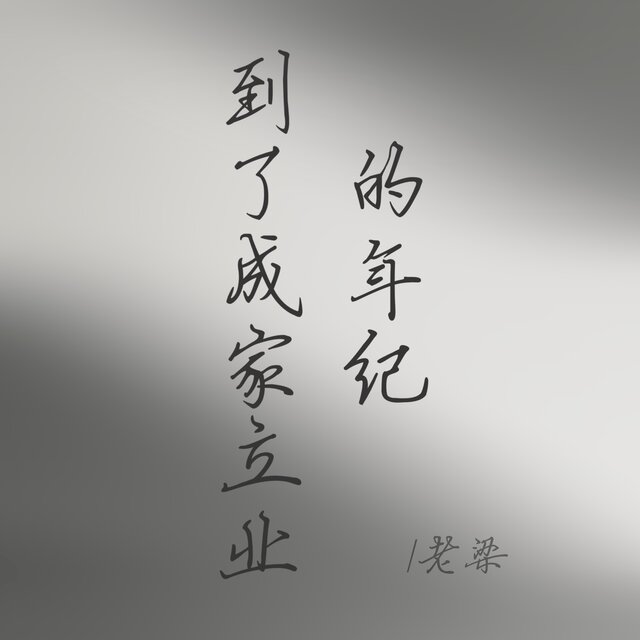 到了成家立业
的年纪
/老梁